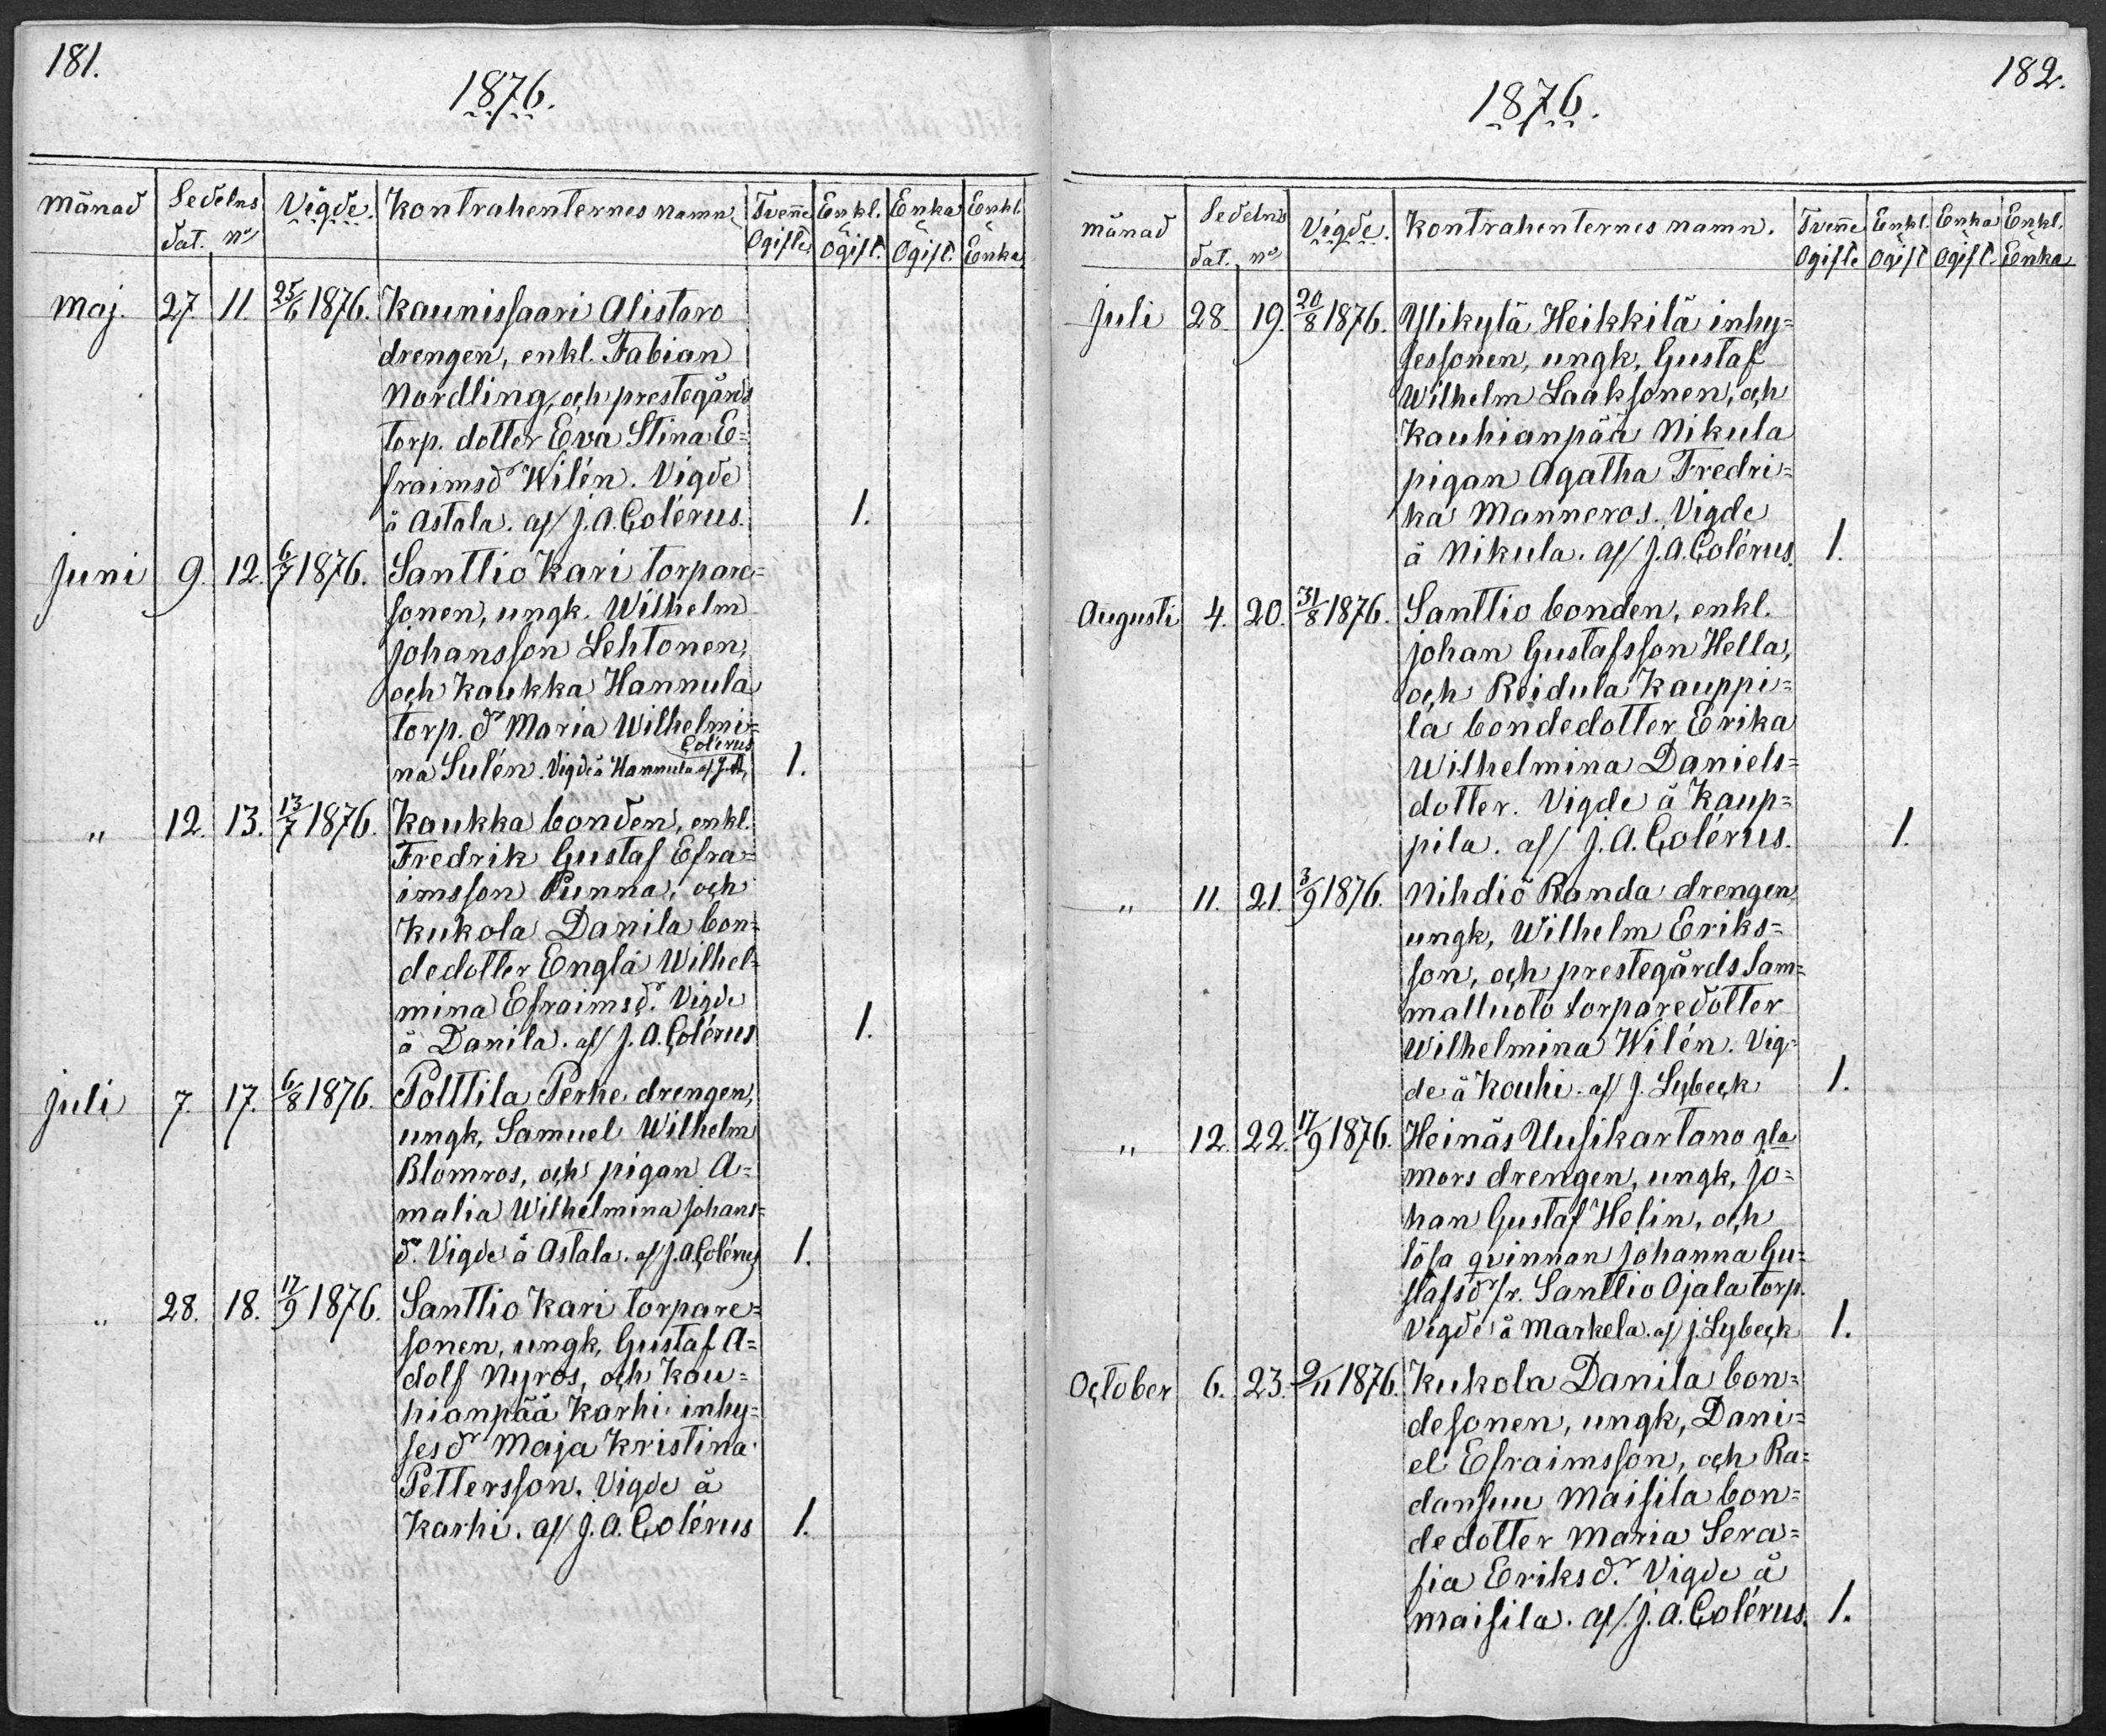 181.
1876.
Månad Sedelns Vigde. Kontrahenternes namn. Tvenne Enkl. Enka Enkl.
dat. No Ogifte Ogift. Ogift. Enka
Maj. 27. 11. 25/6 1876. Kaunissaari Alistaro
drengen, enkl. Fabian
Nordling, och prestegårds
torp. dotter Eva Stina E=
fraimsdr Wilén. Vigde
å Astala. af J. A. Colérus. 1.
Juni 9. 12. 6/7 1876. Santtio Kari torpare=
sonen, ungk. Wilhelm
Johansson Lehtonen,
och Kaukka Hannula
torp. dr Maria Wilhelmi=
na Sulén. Vigde å Hannula af J. A. Colérus 1.
" 12. 13. 13/7 1876. Kaukka bonden, enkl.
Fredrik Gustaf Efra=
imsson Punna, och
Kukola Danila bon=
dedotter Engla Wilhel=
mina Efraimsdr. Vigde
å Danila. af J. A. Colérus 1.
Juli 7. 17. 6/8 1876. Polttila Perhe drengen,
ungk, Samuel Wilhelm
Blomros, och pigan A=
malia Wilhelmina Johans=
dr. Vigde å Astala. af J. A. Colérus 1.
" 28. 18. 17/9 1876. Santtio Kari torpare=
sonen, ungk, Gustaf A=
dolf Nyros, och Kau=
hianpää Karhi inhy=
sesdr Maja Kristina
Pettersson. Vigde å
Karhi. af J. A. Colérus 1.
182.
1876.
Månad Sedelns Vigde. Kontrahenternes namn. Tvenne Enkl. Enka Enkl.
dat. No Ogifte Ogift Ogift. Enka
Juli 28. 19. 20/8 1876. Ylikylä Heikkilä inhy=
sessonen, ungk, Gustaf
Wilhelm Laaksonen, och
Kauhianpää Nikula
pigan Agatha Fredri=
ka Manneros. Vigde
å Nikula. af J. A. Colérus. 1.
Augusti 4. 20. 31/8 1876. Santtio bonden, enkl.
Johan Gustafsson Hella,
och Roidula Kauppi=
la bondedotter Erika
Wilhelmina Daniels=
dotter. Vigde å Kaup=
pila. af J. A. Colérus. 1.
" 11. 21. 3/9 1876. Nihdiö Randa drengen,
ungk, Wilhelm Eriks=
son, och prestegårds Sam=
malluoto torparedotter
Wilhelmina Wilén. Vig=
de å Kouhi. af J. Lybeck 1.
" 12. 22. 17/9 1876. Heinäs Uusikartano gla
mors drengen, ungk, Jo=
han Gustaf Helin, och
lösa qvinnan Johanna Gu=
stafsdr fr. Santtio Ojala torp.
Vigde å Markela. af J. Lybeck 1.
October 6. 23. 9/11 1876. Kukola Danila bon=
desonen, ungk, Dani=
el Efraimsson, och Ra=
dansuu Maisila bon=
dedotter Maria Sera=
fia Eriksdr. Vigde å
Maisila. af J. A. Colérus. 1.